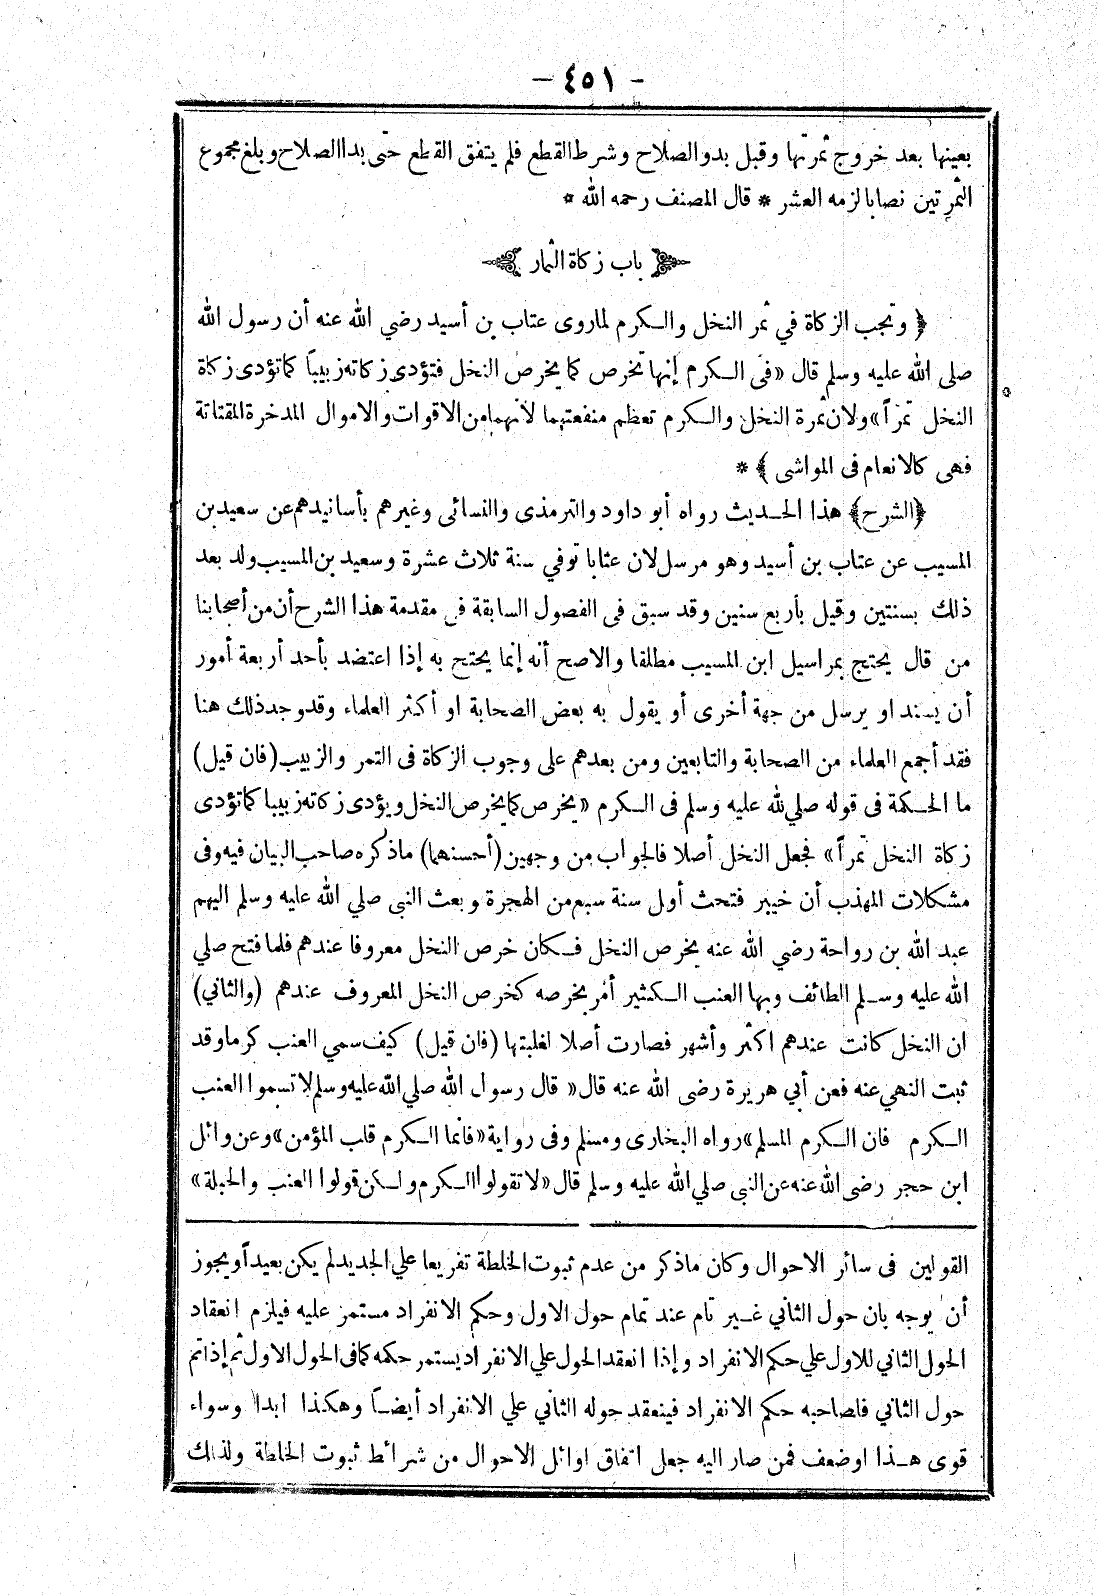 - ٤٥١ -
بعينها بعد خروج ثمرتها وقبل بدو الصلاح وشرط القطع فلم يتفق القطع حتى بدا الصلاح وبلغ مجموع
الثمرتين نصابا لزمه العشر * قال المصنف رحمه الله *
باب زكاة الثمار
﴿ وتجب الزكاة في ثمر النخل والكرم لما روى عتاب بن أسيد رضي الله عنه أن رسول الله
صلى الله عليه وسلم قال «فى الكرم إنها تخرص كما يخرص النخل فتؤدى زكاته زبيباً كما تؤدى زكاة
النخل تمراً» ولان ثمرة النخل والكرم تعظم منفعتهما لأنهما من الاقوات والاموال المدخرة المقتاتة
فهى كالانعام فى المواشى ﴾ *
﴿الشرح﴾ هذا الحديث رواه أبو داود والترمذى والنسائى وغيرهم بأسانيدهم عن سعيد بن
المسيب عن عتاب بن أسيد وهو مرسل لان عتابا توفي سنة ثلاث عشرة وسعيد بن المسيب ولد بعد
ذلك بسنتين وقيل بأربع سنين وقد سبق فى الفصول السابقة فى مقدمة هذا الشرح أن من أصحابنا
من قال يحتج بمراسيل ابن المسيب مطلقا والاصح أنه إنما يحتج به إذا اعتضد بأحد أربعة أمور
أن يسند او يرسل من جهة أخرى أو يقول به بعض الصحابة او أكثر العلماء وقد وجد ذلك هنا
فقد أجمع العلماء من الصحابة والتابعين ومن بعدهم على وجوب الزكاة فى التمر والزبيب (فان قيل)
ما الحكمة فى قوله صلي لله عليه وسلم فى الكرم «يخرص كما يخرص النخل ويؤدى زكاته زبيبا كما تؤدى
زكاة النخل تمراً» فجعل النخل أصلا فالجواب من وجهين (أحسنهما) ما ذكره صاحب البيان فيه وفى
مشكلات المهذب أن خيبر فتحت أول سنة سبع من الهجرة وبعث النبى صلي الله عليه وسلم اليهم
عبد الله بن رواحة رضي الله عنه يخرص النخل فكان خرص النخل معروفا عندهم فلما فتح صلي
الله عليه وسلم الطائف وبها العنب الكثير أمر بخرصه كخرص النخل المعروف عندهم (والثاني)
ان النخل كانت عندهم اكثر وأشهر فصارت أصلا لغلبتها (فان قيل) كيف سمي العنب كرما وقد
ثبت النهي عنه فعن أبي هريرة رضى الله عنه قال «قال رسول الله صلي الله عليه وسلم لا تسموا العنب
الكرم فان الكرم المسلم» رواه البخارى ومسلم وفى رواية «فانما الكرم قلب المؤمن» وعن وائل
ابن حجر رضى الله عنه عن النبى صلي الله عليه وسلم قال «لا تقولوا الكرم ولكن قولوا العنب والحبلة»
القولين فى سائر الاحوال وكان ما ذكر من عدم ثبوت الخلطة تفريعا علي الجديد لم يكن بعيداً ويجوز
أن يوجه بان حول الثاني غير تام عند تمام حول الاول وحكم الانفراد مستمر عليه فيلزم انعقاد
الحول الثاني للاول علي حكم الانفراد وإذا انعقد الحول علي الانفراد يستمر حكمه كما فى الحول الاول ثم إذا تم
حول الثاني فلصاحبه حكم الانفراد فينعقد حوله الثاني علي الانفراد أيضاً وهكذا ابدا وسواء
قوى هذا او ضعف فمن صار اليه جعل اتفاق اوائل الاحوال من شرائط ثبوت الخلطة ولذلك